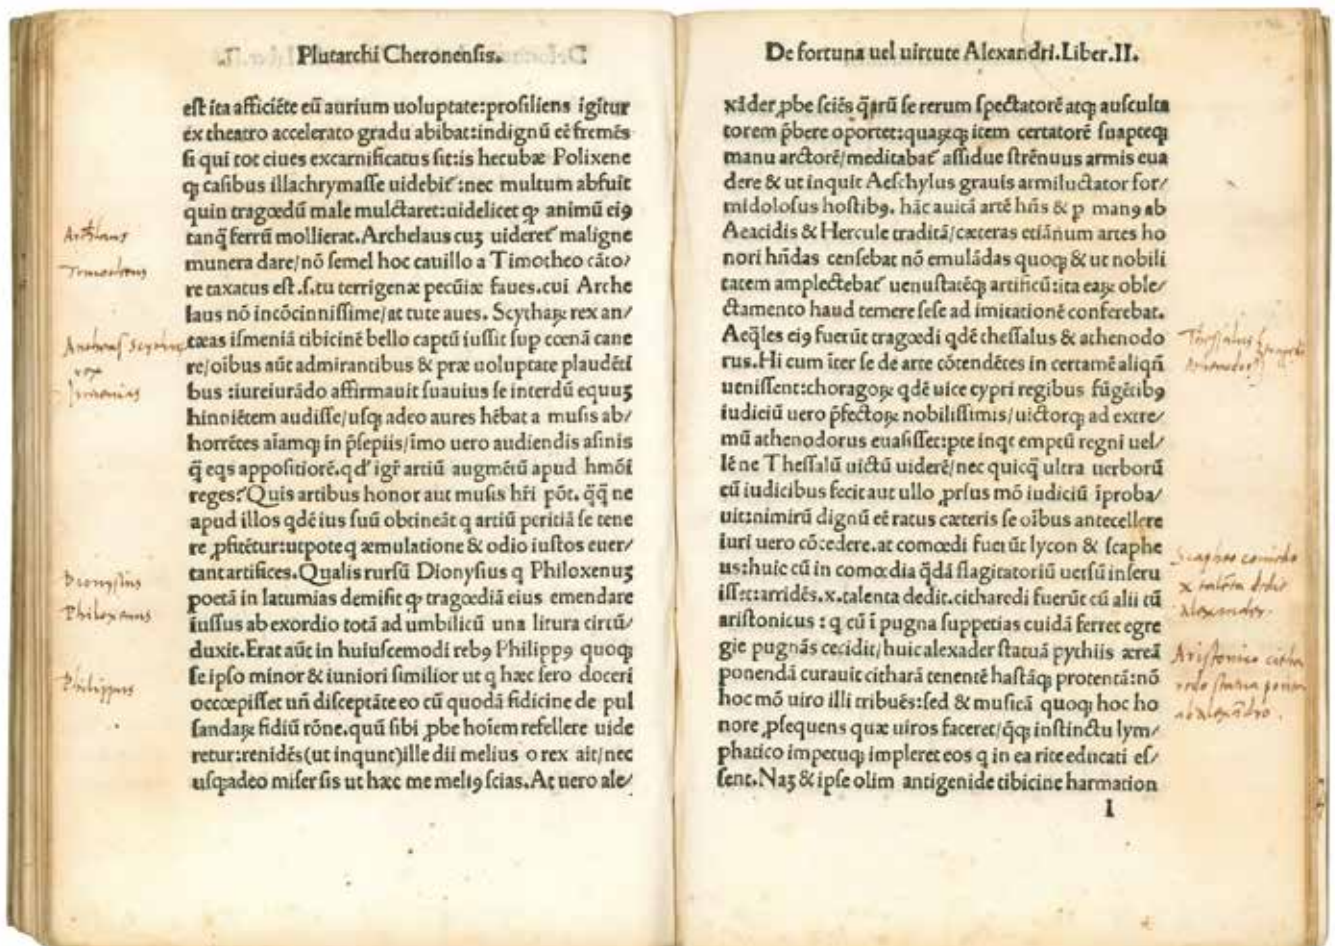 Plutarchi Cheronensis.
est ita afficiēte eū aurium uoluptate:prosiliens igitur
ex theatro accelerato gradu abibat:indignū eē fremēs
si qui tot ciues excarnificatus sit:is hecubæ Polixene
qꝫ casibus illachrymasse uidebit᷑:nec multum abfuit
quin tragœdū male mulctaret:uidelicet ꝙ animū eiꝰ
tanq̄ ferrū mollierat.Archelaus cuꝫ uideret᷑ maligne
munera dare/nō semel hoc cauillo a Timotheo cāto/
re taxatus est.s.tu terrigenæ pecūiæ faues.cui Arche
laus nō incōcinnissime/at tute aues. Scythaꝝ rex an/
tæas ismeniā tibicinē bello captū iussit sup cœnā cane
re/oībus aūt admirantibus & præ uoluptate plaudēti
bus :iureiurādo affirmauit suauius se interdū equuꝫ
hinniētem audisse/usqꝫ adeo aures hēbat a musis ab/
horrētes aīamqꝫ in p̄sepiis/īmo uero audiendis asinis
q̄ eqs appositiorē.qd' igr̄ artiū augmētū apud hmōi
reges?Quis artibus honor aut musis hr̄i pōt. q̄q̄ ne
apud illos qdē ius suū obtineāt q artiū peritiā se tene
re ꝓfitētur:utpote q æmulatione & odio iustos euer/
tant artifices.Qualis rursū Dionysius q Philoxenuꝫ
poetā in latumias demisit ꝙ tragœdiā eius emendare
iussus ab exordio totā ad umbilicū una litura circū/
duxit.Erat aūt in huiuscemodi rebꝰ Philippꝰ quoqꝫ
se ipso minor & iuniori similior ut q hæc sero doceri
occœpisset un̄ disceptāte eo cū quodā fidicine de pul
sandaꝝ fidiū rōne.quū sibi ꝓbe hoīem refellere uide
retur:renidēs(ut inqunt)ille dii melius o rex ait/nec
usqꝫadeo miser sis ut hæc me meliꝰ scias.At uero ale/
Archelaus
Timotheus
Antheas Scytharum
rex
Ismenias
Dionysius
Philoxenus
Philippus
De fortuna uel uirtute Alexandri.Liber.II.
xāder ꝓbe sciēs q̄rū se rerum spectatorē atqꝫ ausculta
torem p̄bere oportet:quaꝝqꝫ item certatorē suapteqꝫ
manu arctorē/meditabat᷑ assidue strēnuus armis eua
dere & ut inquit Aeschylus grauis armiluctator for/
midolosus hostibꝰ. hāc auitā artē hn̄s & p manꝰ ab
Aeacidis & Hercule traditā/cæteras etiānum artes ho
nori hn̄das censebat nō emulādas quoqꝫ & ut nobili
tatem amplectebat᷑ uenustatēqꝫ artificū:ita eaꝝ oble/
ctamento haud temere sese ad imitationē conferebat.
Aeq̄les eiꝰ fuerūt tragœdi qdē thessalus & athenodo
rus.Hi cum īter se de arte cōtendētes in certamē aliqn̄
uenissent:choragoꝝ qdē uice cypri regibus fūgētibꝰ
iudiciū uero p̄fectoꝝ nobilissimis/uictorqꝫ ad extre/
mū athenodorus euasisset:pte inqt emptū regni uel/
lē ne Thessalū uictū uiderē/nec quicq̄ ultra uerborū
cū iudicibus fecit aut ullo ꝓrsus mō iudiciū īproba/
uit:nimirū dignū eē ratus cæteris se oībus antecellere
iuri uero cōcedere.at comœdi fuerūt lycon & scaphe
us:huic cū in comœdia q̄dā flagitatoriū uersū inseru
isset:arridēs.x.talenta dedit.citharedi fuerūt cū alii tū
aristonicus : q cū ī pugna suppetias cuidā ferret egre
gie pugnās cecidit/huic alexāder statuā pythiis æreā
ponendā curauit citharā tenentē hastāqꝫ protentā:nō
hoc mō uiro illi tribuēs:sed & musicā quoqꝫ hoc ho
nore ꝓsequens quæ uiros faceret/q̄qꝫ instinctu lym/
phatico impetuqꝫ impleret eos q in ea rite educati es/
sent.Naꝫ & ipse olim antigenide tibicine harmation
I
Thessalus
Scapheo comœdo
x talēta dedit
Alexander.
Aristonico citha
redo statua
ab alexādro.